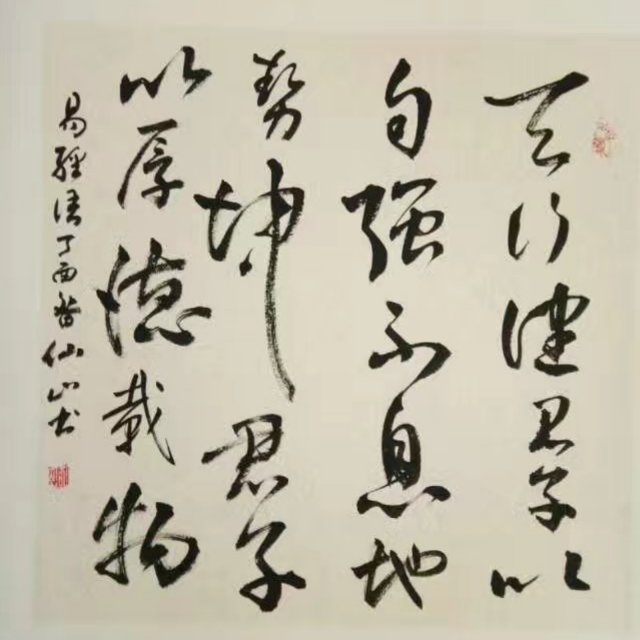 天行健君子以
自强不息地
势坤君子
以厚德载物
易经语丁酉春仙山书